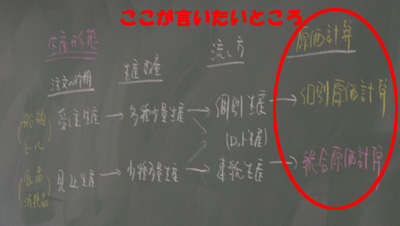 ここが言いたいところ
生産形態
原価計算
注文の時期
生産数量
流し方
受注生産
多種少量生産
個別生産
個別原価計算
(ロット生産)
見込生産
少種多量生産
連続生産
総合原価計算
船舶
ビル
食品